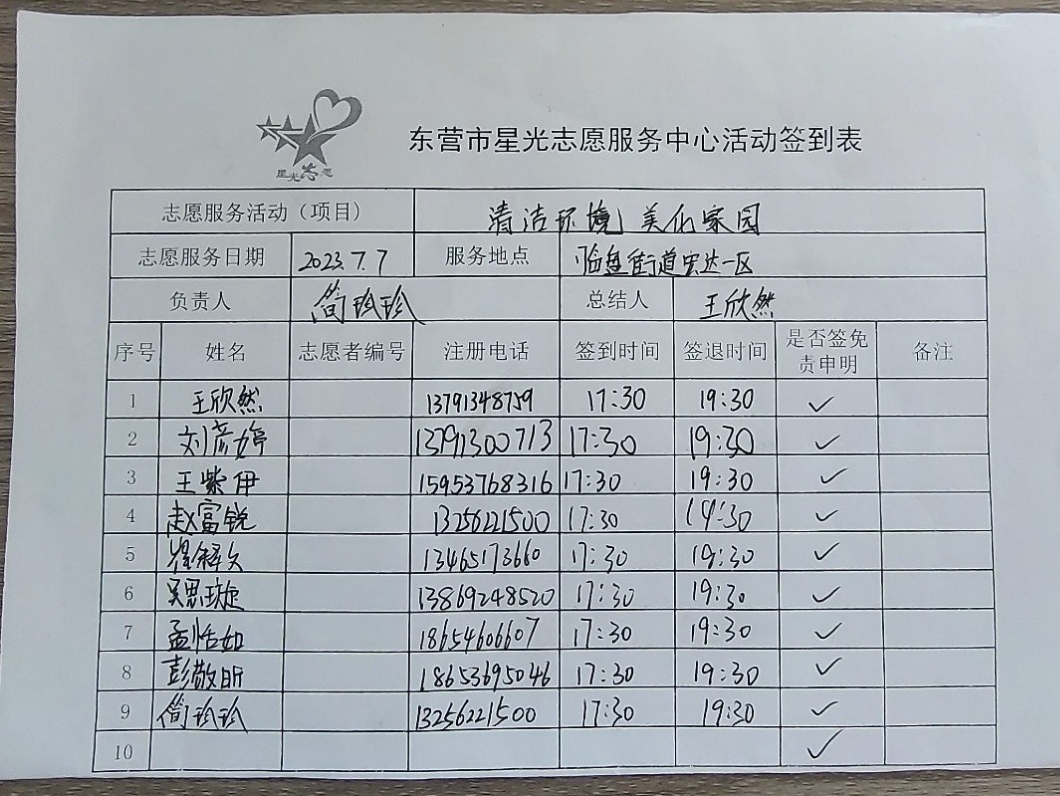 星光志愿
东营市星光志愿服务中心活动签到表
志愿服务活动（项目） 清洁环境 美化家园
志愿服务日期 2023.7.7 服务地点 临盘街道宏达一区
负责人 简珍珍 总结人 王欣然
序号 姓名 志愿者编号 注册电话 签到时间 签退时间 是否签免责申明 备注
1 王欣然 13791348759 17:30 19:30 ✓
2 刘彦婷 13791300713 17:30 19:30 ✓
3 王紫伊 15953768316 17:30 19:30 ✓
4 赵富锐 13256221500 17:30 19:30 ✓
5 13465173660 17:30 19:30 ✓
6 吴思璇 13869248520 17:30 19:30 ✓
7 孟恬如 18654606607 17:30 19:30 ✓
8 彭敬昕 18653695046 17:30 19:30 ✓
9 简珍珍 13256221500 17:30 19:30 ✓
10 ✓